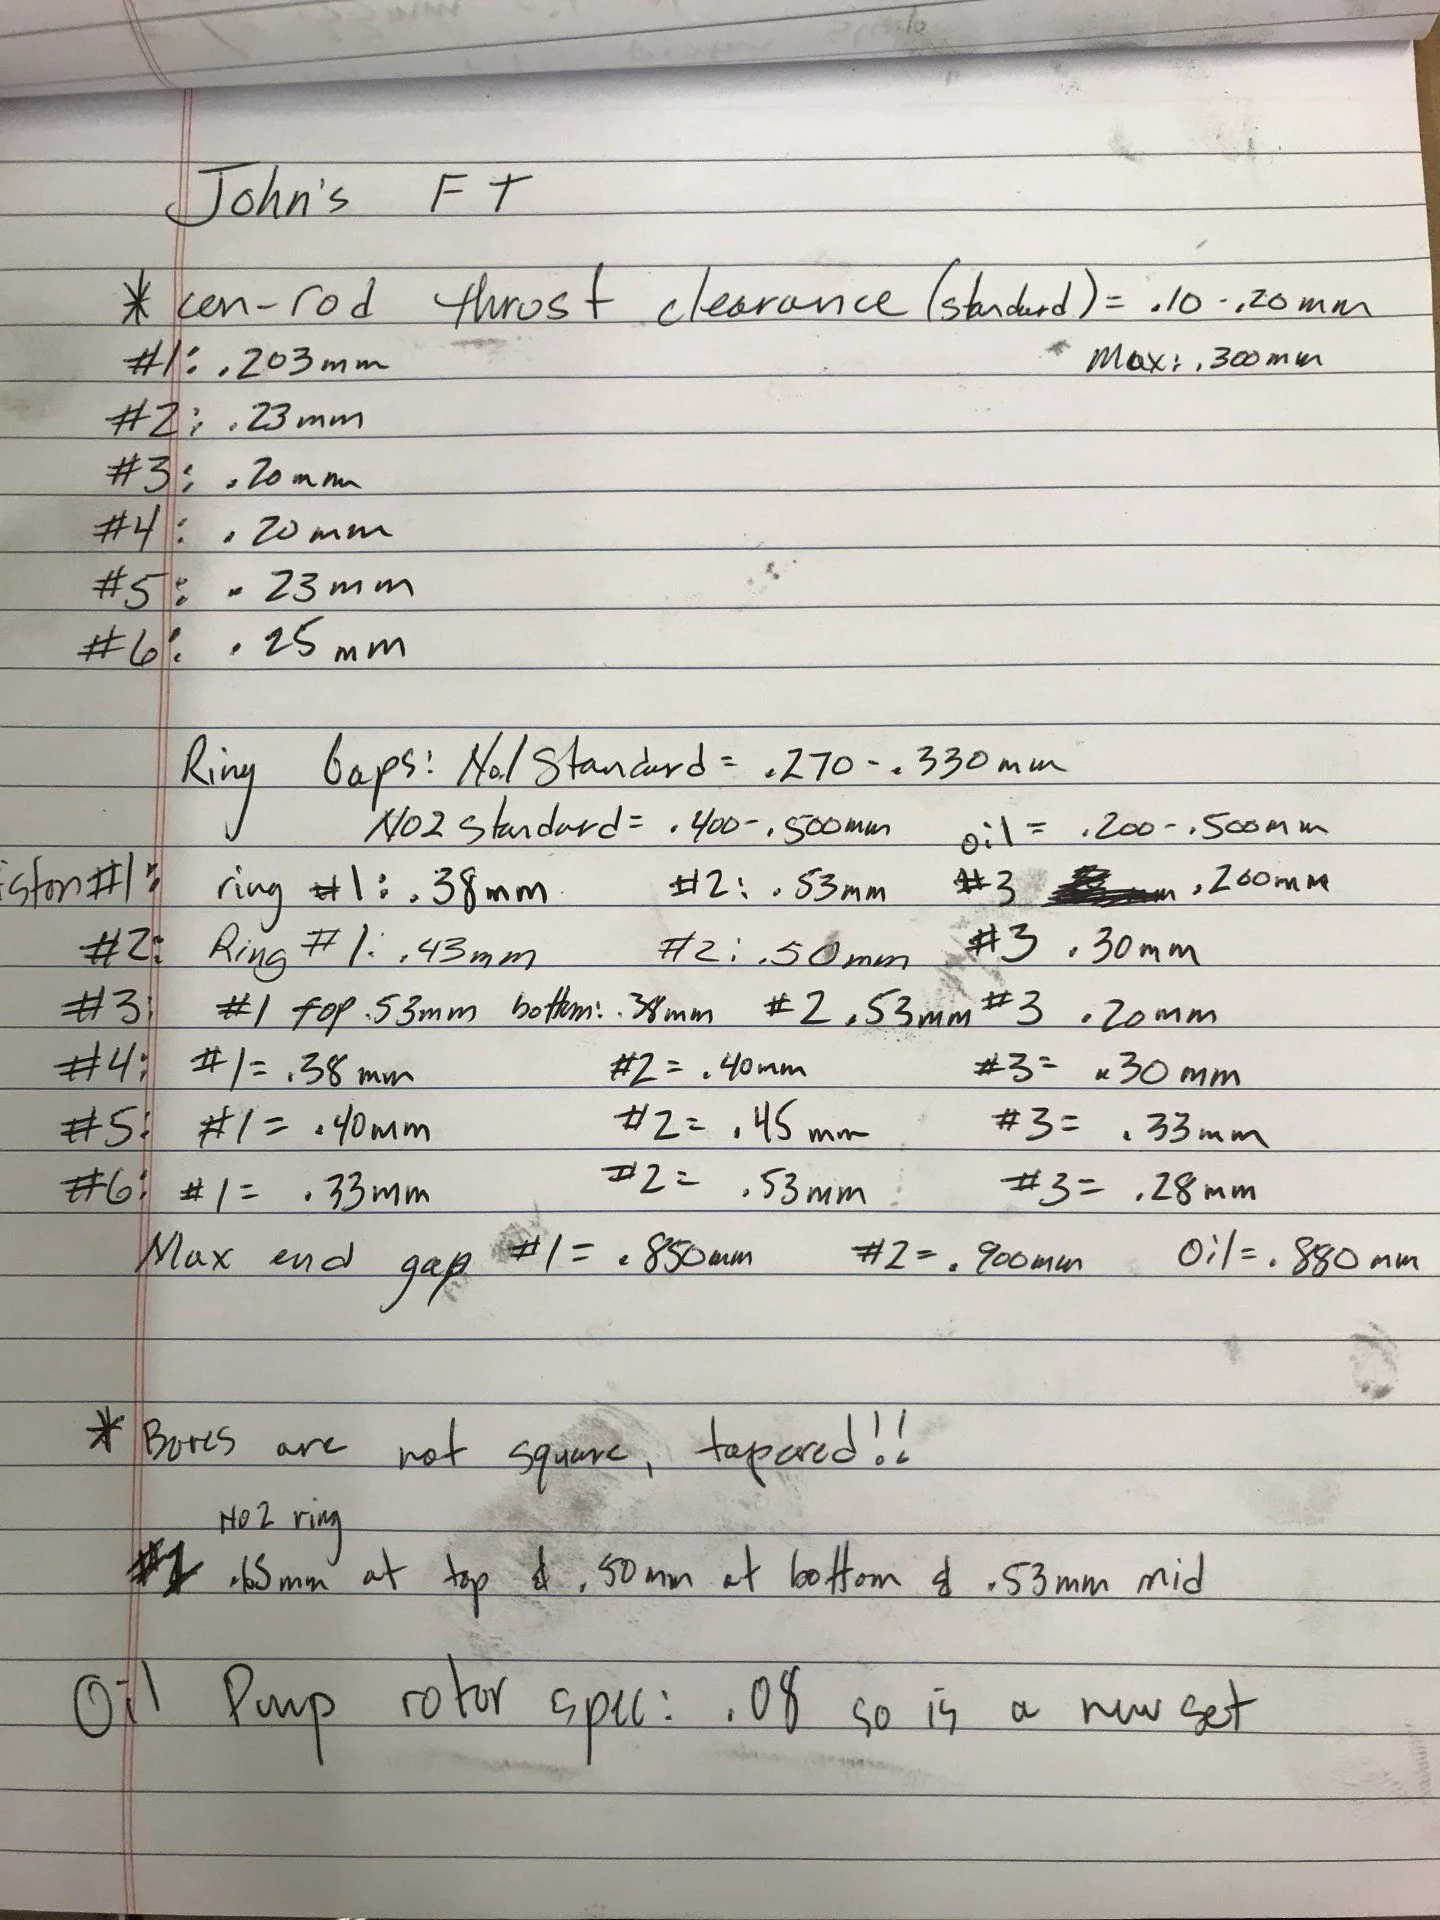 John's FT
* con-rod thrust clearance (standard) = .10 - .20mm
#1: .203mm Max: .300mm
#2: .23mm
#3: .20mm
#4: .20mm
#5: .23mm
#6: .25mm
Ring Gaps: No1 Standard = .270 - .330mm
NO2 standard = .400 - .500mm oil = .200 - .500mm
iston #1: ring #1: .38mm #2: .53mm #3 .200mm
#2: Ring #1: .43mm #2: .50mm #3 .30mm
#3: #1 top .53mm bottom: .38mm #2 .53mm #3 .20mm
#4: #1 = .38mm #2 = .40mm #3 = .30mm
#5: #1 = .40mm #2 = .45mm #3 = .33mm
#6: #1 = .33mm #2 = .53mm #3 = .28mm
Max end gap #1 = .850mm #2 = .900mm Oil = .880mm
* Bores are not square, tapered!!
NO2 ring
.65mm at top & .50mm at bottom & .53mm mid
Oil Pump rotor spec: .08 so is a new set